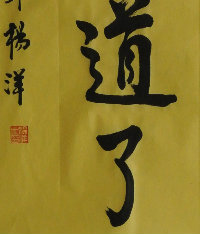 道了
楊洋